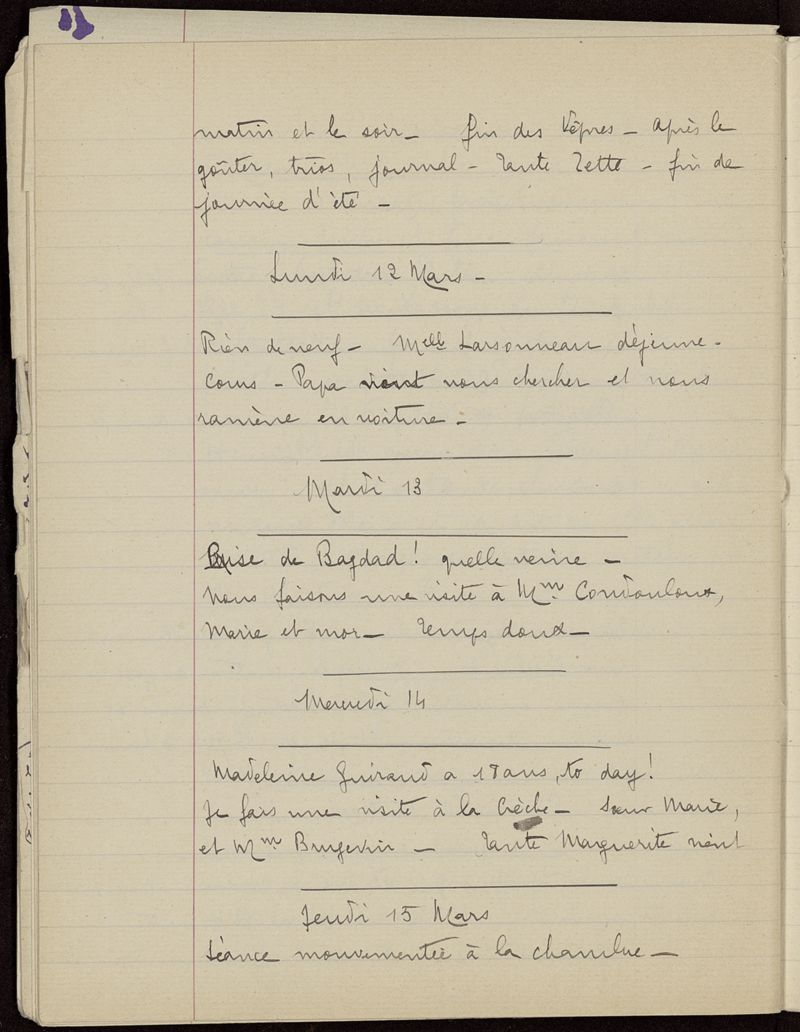 matin et le soir — fin des Vêpres — Après le
goûter, trios, journal — Tante Zette — fin de
journée d'été —
Lundi 12 Mars —
Rien de neuf — Melle Larsonneau déjeune —
Cours — Papa vient nous chercher et nous
ramène en voiture —
Mardi 13
Prise de Bagdad ! quelle veine —
Nous faisons une visite à Mme
Marie et moi — Temps doux —
Mercredi 14
Madeleine Guiraud a 18 ans, to day !
Je fais une visite à la Crèche — Sœur Marie,
et Mme — Tante Marguerite vient
Jeudi 15 Mars
Séance mouvementée à la chambre —